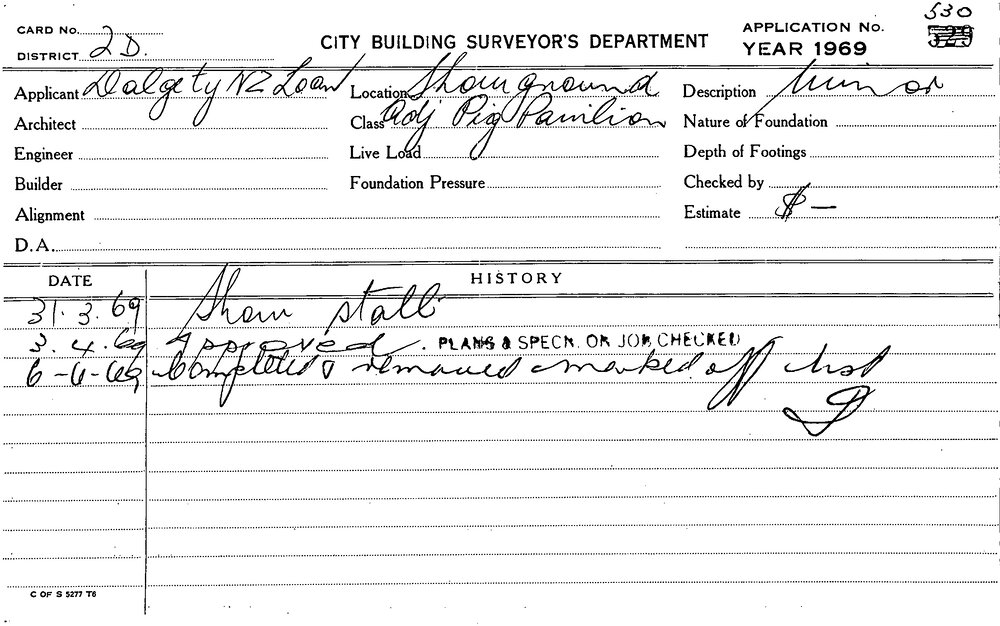 CARD No.
DISTRICT 2 D.
CITY BUILDING SURVEYOR'S DEPARTMENT
APPLICATION No. 530
YEAR 1969
Applicant Dalgety NZ Loan
Location Showground
Description Minor
Architect
Class Adj Pig Pavilion
Nature of Foundation
Engineer
Live Load
Depth of Footings
Builder
Foundation Pressure
Checked by
Alignment
Estimate $ —
D.A.
DATE
HISTORY
31.3.69 Show stall
3.4.69 Approved. PLANS & SPECN. ON JOB CHECKED
6-6-69 Completed & removed marked off list
C OF S 5277 T6